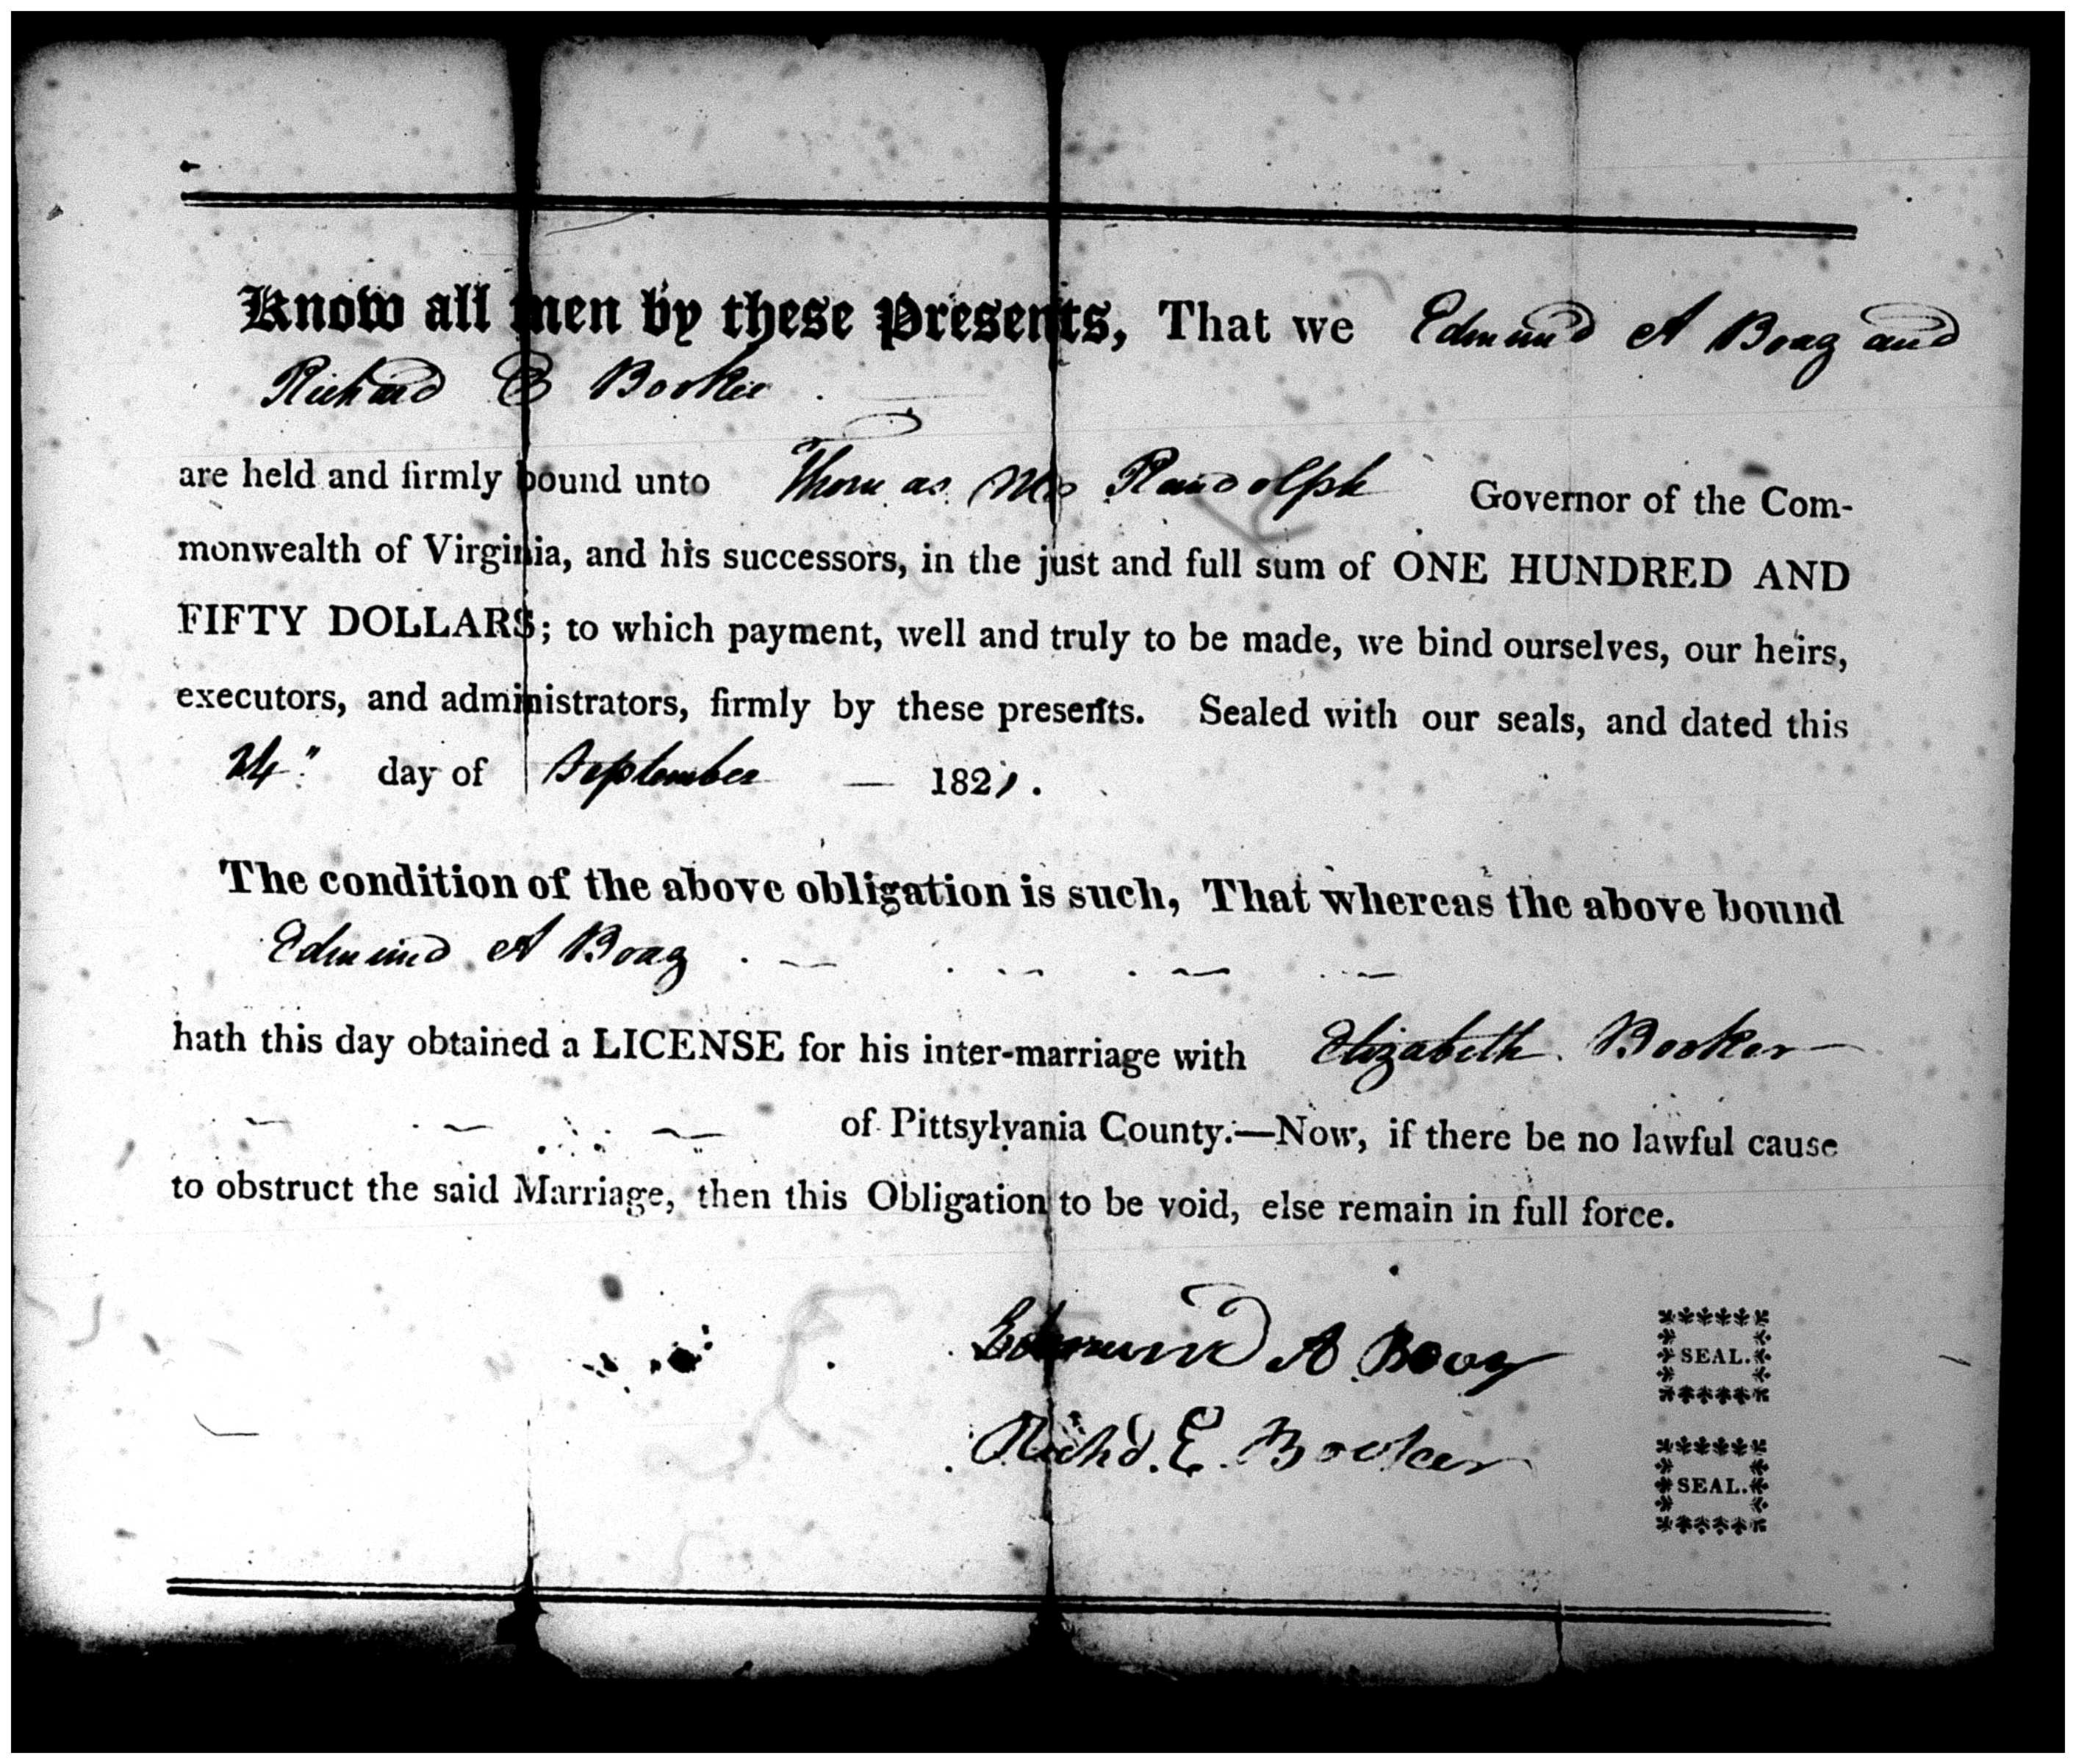 Know all men by these Presents, That we Edmund A Boag and
Richard E Booker
are held and firmly bound unto Thomas M Randolph Governor of the Com-
monwealth of Virginia, and his successors, in the just and full sum of ONE HUNDRED AND
FIFTY DOLLARS; to which payment, well and truly to be made, we bind ourselves, our heirs,
executors, and administrators, firmly by these presents. Sealed with our seals, and dated this
24" day of September — 1821.
The condition of the above obligation is such, That whereas the above bound
Edmund A Boag
hath this day obtained a LICENSE for his inter-marriage with Elizabeth Booker
of Pittsylvania County.—Now, if there be no lawful cause
to obstruct the said Marriage, then this Obligation to be void, else remain in full force.
Edmund A Boag
SEAL.
Richd. E. Booker
SEAL.